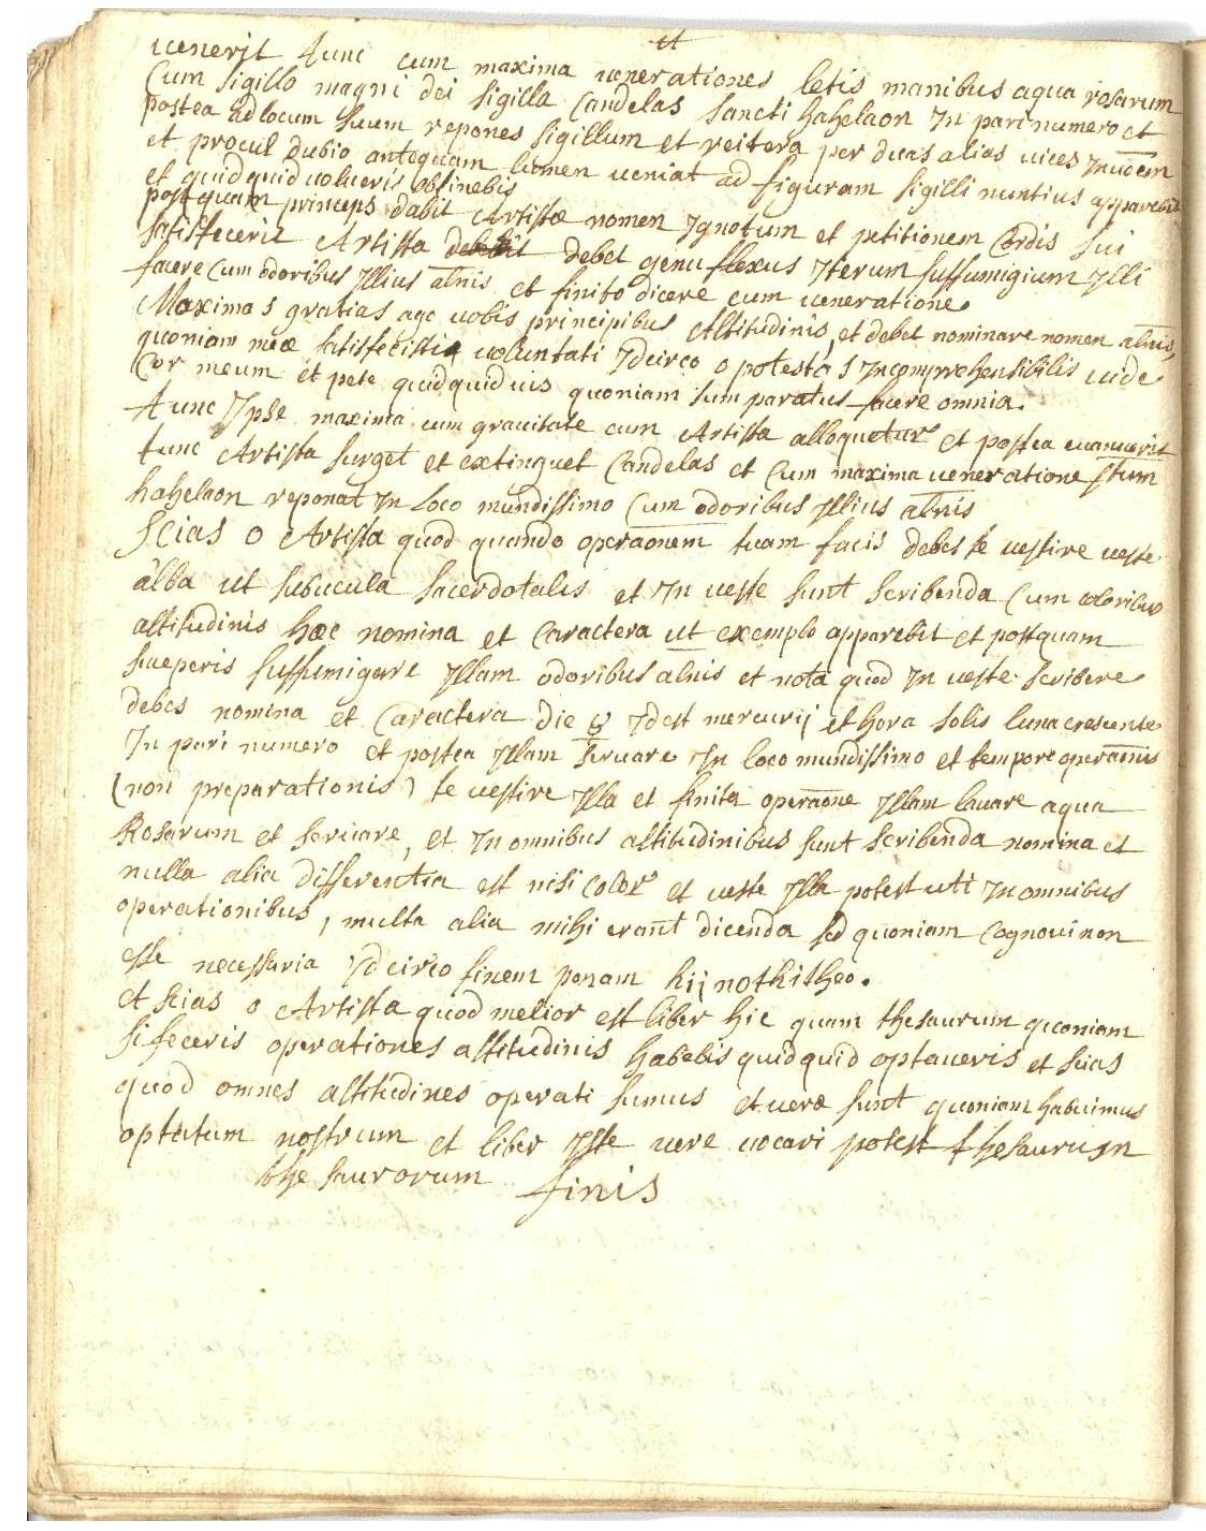 et
venerit tunc cum maxima venerationes letis manibus aqua rosarum
Cum sigillo magni dei sigilla Candelas Sancti hahelaon In pari numero et
postea ad locum suum repones sigillum et reitera per duas alias vices
et procul dubio antequam lumen veniat ad figuram sigilli nuntius apparebit
et quidquid volueris obtinebis
postquam princeps dabit Artistæ nomen Ignotum et petitionem Cordis sui
satisfecerit Artista debet genu flexus Iterum suffumigium Illi
facere Cum odoribus Illius altnis et finito dicere cum veneratione
Maximas gratias ago vobis principibus Altitudinis, et debet nominare nomen altnis,
quoniam meæ satisfecistis voluntati Idcirco o potestas Incomprehensibilis vide
Cor meum et pete quidquid vis quoniam sum paratus facere omnia.
tunc Ipse maxima cum gravitate cum Artista alloquetur et postea evanuerit
tunc Artista surget et extinguet Candelas et Cum maxima veneratione stum
hahelaon reponat In Loco mundissimo Cum odoribus Illius altnis
Scias o Artista quod quando operaonem tuam facis debes te vestire veste
alba ut subucula sacerdotalis et In veste sunt scribenda Cum coloribus
altitudinis hæc nomina et Caractera ut exemplo apparebit et postquam
suffumigare Illam odoribus altnis et nota quod In veste scribere
debes nomina et Caractera die ☿ Idest mercurij et hora solis luna crescente
In pari numero et postea Illam servare In loco mundissimo et tempore operaonis
(non preparationis) te vestire Illa et finita operaone Illam lavare aqua
Rosarum et servare, et In omnibus altitudinibus sunt scribenda nomina et
nulla alia differentia est nisi Color et veste Illa potest uti In omnibus
operationibus, multa alia mihi erant dicenda sed quoniam Cognovi non
esse necessaria Idcirco finem ponam hij nothitheo.
et scias o Artista quod melior est liber hic quam thesaurum quoniam
si feceris operationes altitudinis habebis quidquid optaveris et scias
quod omnes altitudines operati sumus et veræ sunt quoniam habuimus
optatum nostrum et liber Iste vere vocari potest thesaurum
thesaurorum finis